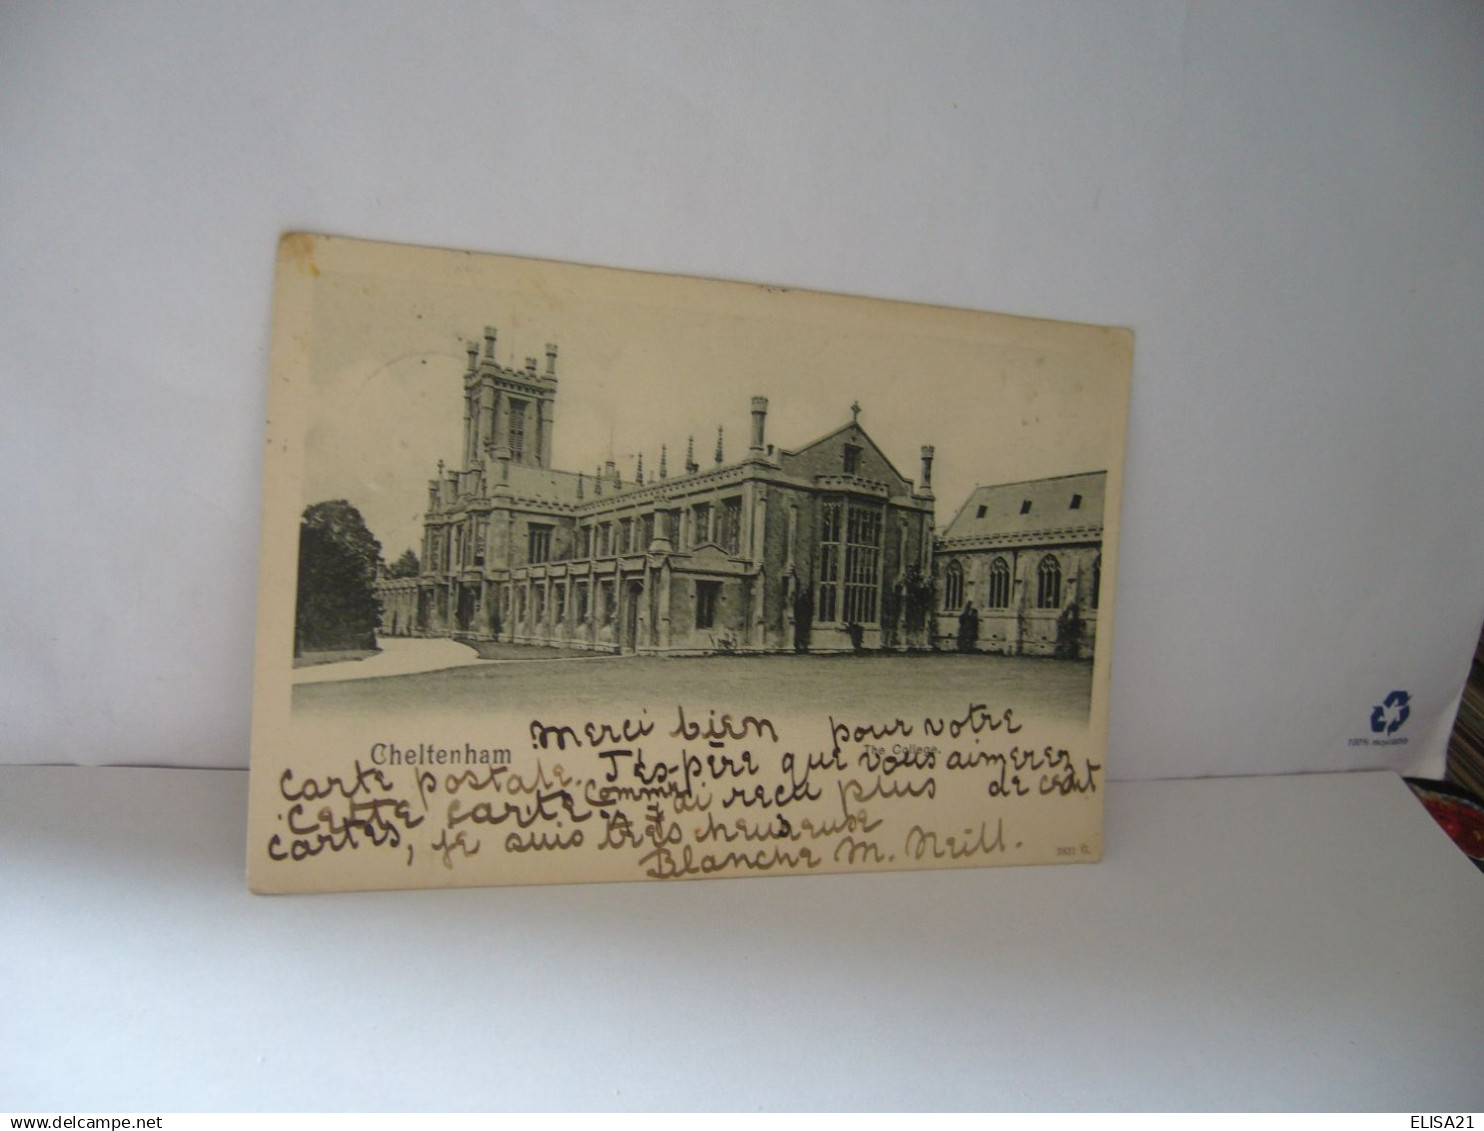 Merci bien pour votre
Cheltenham
The College.
carte postale. J'éspère que vous aimerez
cette carte. Comme j'ai reçu plus de cent
cartes, je suis très heureuse
Blanche M. Neill.
100% recyclable
ELISA21